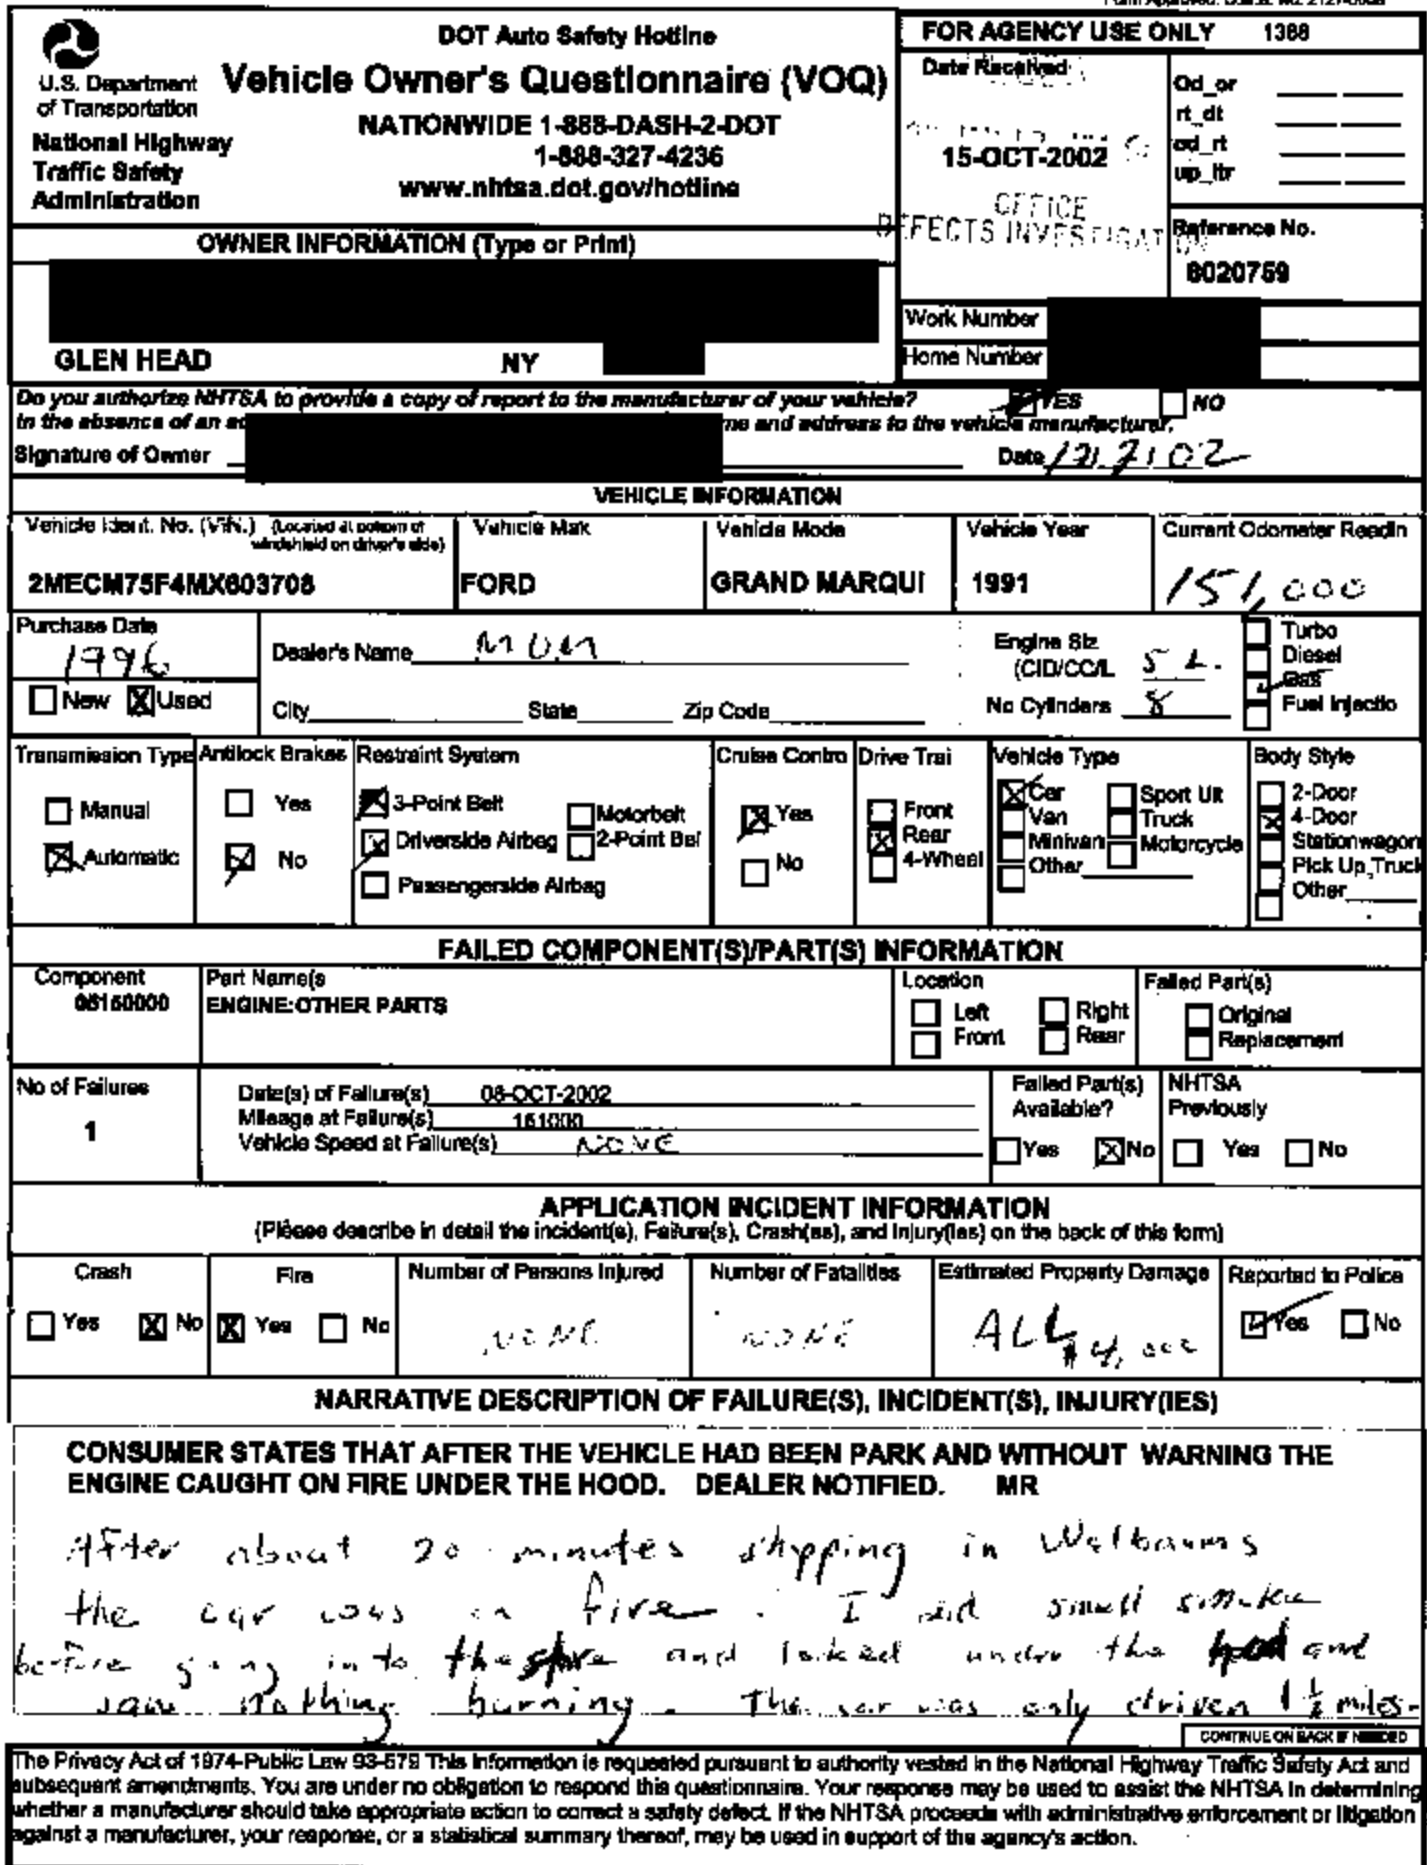 DOT Auto Safety Hotline
Vehicle Owner's Questionnaire (VOQ)
NATIONWIDE 1-888-DASH-2-DOT
1-888-327-4236
www.nhtsa.dot.gov/hotline
U.S. Department
of Transportation
National Highway
Traffic Safety
Administration
FOR AGENCY USE ONLY 1388
Date Received
15-OCT-2002
OFFICE
DEFECTS INVESTIGATION
Od_or
rt_dt
od_rt
up_ltr
Reference No.
8020759
OWNER INFORMATION (Type or Print)
GLEN HEAD NY
Work Number
Home Number
Do you authorize NHTSA to provide a copy of report to the manufacturer of your vehicle? YES NO
In the absence of an me and address to the vehicle manufacturer.
Signature of Owner Date 02
VEHICLE INFORMATION
Vehicle Ident. No. (VIN.) (Located at bottom of
windshield on driver's side)
2MECM75F4MX603708
Vehicle Mak
FORD
Vehicle Mode
GRAND MARQUI
Vehicle Year
1991
Current Odometer Readin
151,000
Purchase Date
1996
New Used
Dealer's Name MOM
City State Zip Code
Engine Siz
(CID/CC/L 5 L.
No Cylinders 8
Turbo
Diesel
Gas
Fuel Injectio
Transmission Type
Manual
Automatic
Antilock Brakes
Yes
No
Restraint System
3-Point Belt
Driverside Airbag
Passengerside Airbag
Motorbelt
2-Point Bel
Cruise Contro
Yes
No
Drive Trai
Front
Rear
4-Wheel
Vehicle Type
Car
Van
Minivan
Other
Sport Ut
Truck
Motorcycle
Body Style
2-Door
4-Door
Stationwagon
Pick Up,Truck
Other
FAILED COMPONENT(S)/PART(S) INFORMATION
Component
06150000
Part Name(s
ENGINE:OTHER PARTS
Location
Left Right
Front Rear
Failed Part(s)
Original
Replacement
No of Failures
1
Date(s) of Failure(s) 08-OCT-2002
Mileage at Failure(s) 151000
Vehicle Speed at Failure(s) NONE
Failed Part(s)
Available?
Yes No
NHTSA
Previously
Yes No
APPLICATION INCIDENT INFORMATION
(Please describe in detail the incident(s), Failure(s), Crash(es), and Injury(ies) on the back of this form)
Crash
Yes No
Fire
Yes No
Number of Persons Injured
NONE
Number of Fatalities
NONE
Estimated Property Damage
ALL
$4,000
Reported to Police
Yes No
NARRATIVE DESCRIPTION OF FAILURE(S), INCIDENT(S), INJURY(IES)
CONSUMER STATES THAT AFTER THE VEHICLE HAD BEEN PARK AND WITHOUT WARNING THE
ENGINE CAUGHT ON FIRE UNDER THE HOOD. DEALER NOTIFIED. MR
After about 20 minutes shopping in Walbaums
the car was on fire. I did smell smoke
before going into the store and looked under the hood and
saw nothing burning. The car was only driven 1 1/2 miles-
CONTINUE ON BACK IF NEEDED
The Privacy Act of 1974-Public Law 93-579 This information is requested pursuant to authority vested in the National Highway Traffic Safety Act and
subsequent amendments. You are under no obligation to respond this questionnaire. Your response may be used to assist the NHTSA in determining
whether a manufacturer should take appropriate action to correct a safety defect. If the NHTSA proceeds with administrative enforcement or litigation
against a manufacturer, your response, or a statistical summary thereof, may be used in support of the agency's action.